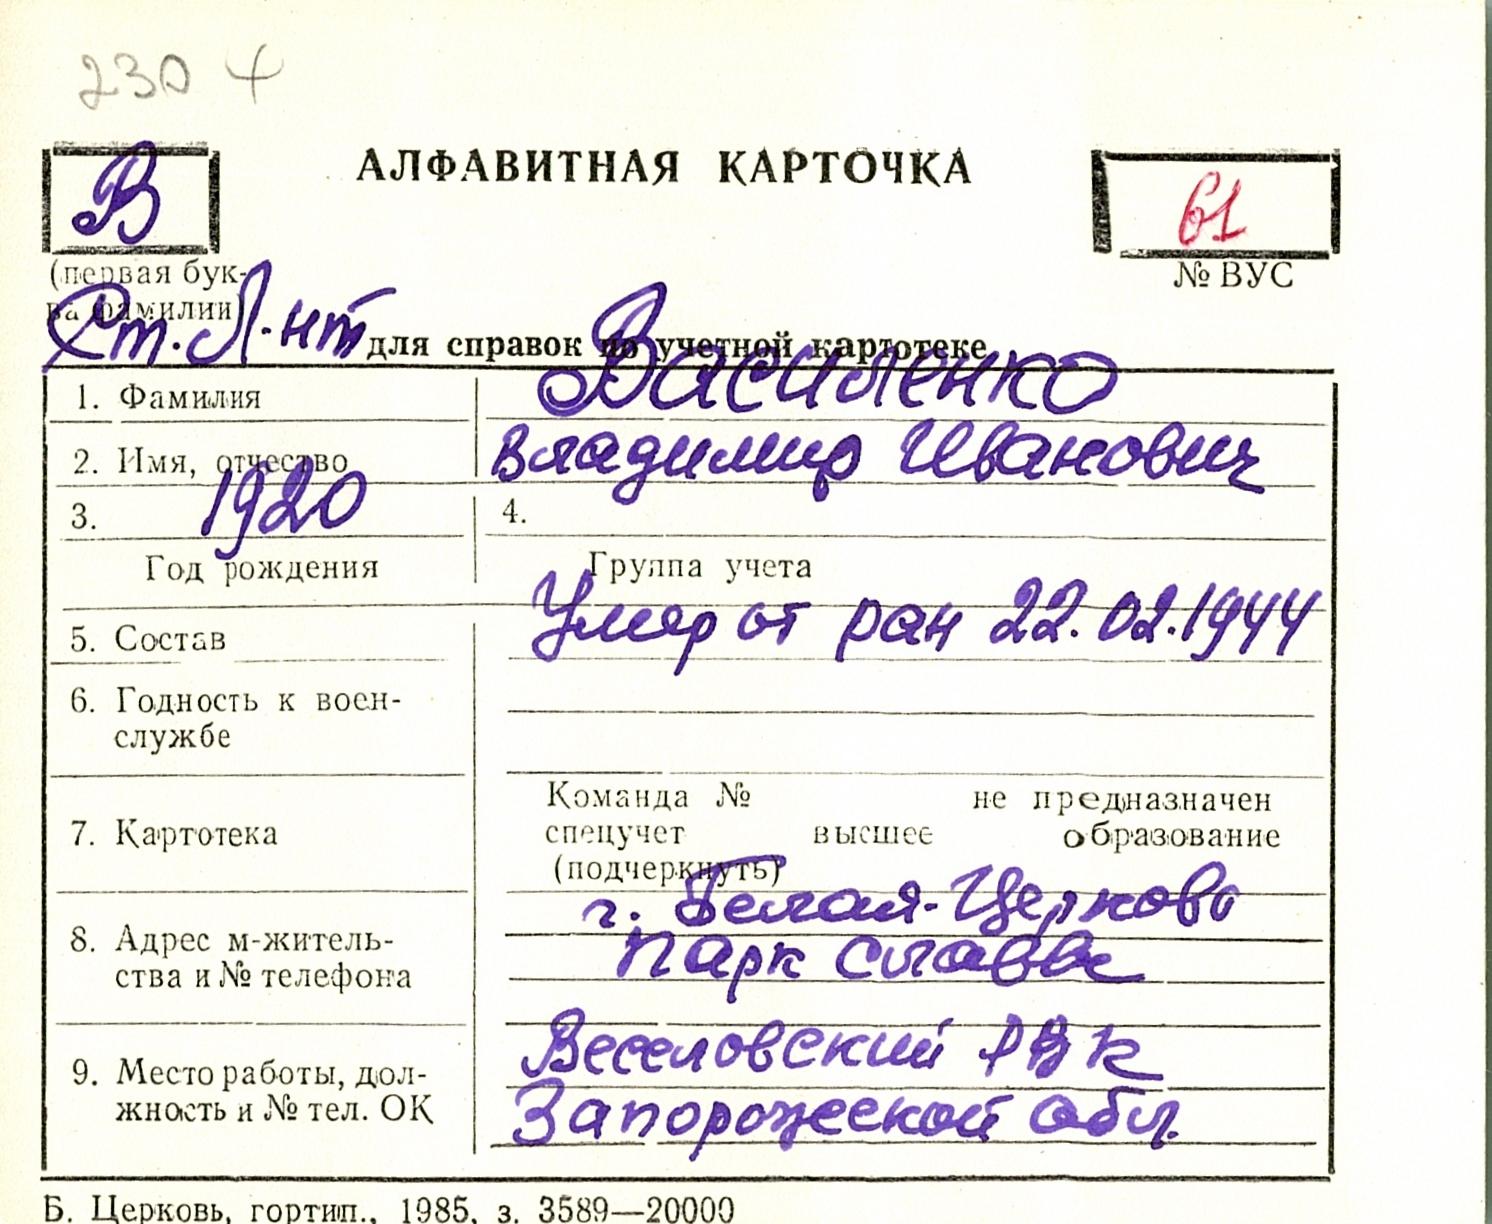 230 4
В
АЛФАВИТНАЯ КАРТОЧКА
61
(первая бук-
ва фамилии)
№ ВУС
Ст. Л-нт
для справок по учетной картотеке
1. Фамилия
Василенко
2. Имя, отчество
Владимир Иванович
3. 1920
4.
Год рождения
Группа учета
5. Состав
Умер от ран 22.02.1944
6. Годность к воен-
службе
7. Картотека
Команда № не предназначен
спецучет высшее образование
(подчеркнуть)
8. Адрес м-житель-
ства и № телефона
г. Белая-Церковь
Парк славы
9. Место работы, дол-
жность и № тел. ОК
Веселовский РВК
Запорожской обл.
Б. Церковь, гортип., 1985, з. 3589—20000